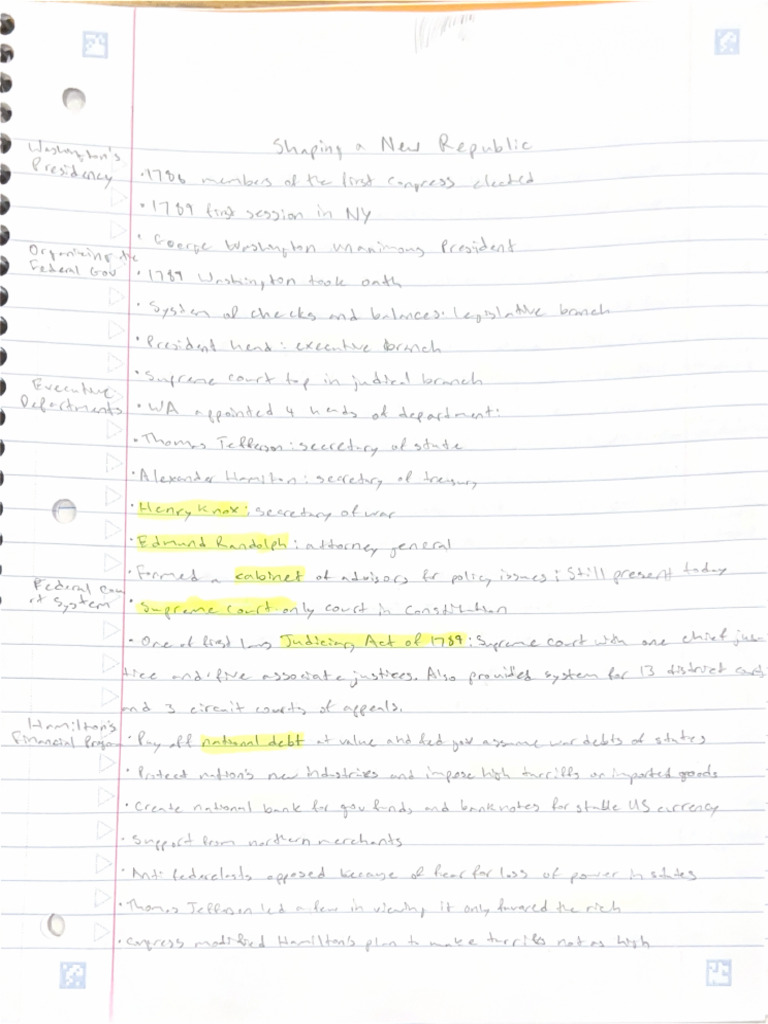 Shaping a New Republic
Washington's
Presidency
• 1786 members of the first congress elected
• 1789 first session in NY
• George Washington unanimous President
Organizing the
Federal Gov
• 1789 Washington took oath
• System of checks and balances: legislative branch
• President head: executive branch
• Supreme court top in judical branch
Executive
Departments
• WA appointed 4 heads of department:
• Thomas Jefferson: secretary of state
• Alexander Hamilton: secretary of treasury
• Henry Knox: secretary of war
• Edmund Randolph: attorney general
• Formed a cabinet of advisors for policy issues; Still present today
Federal Cou
rt System
• Supreme court only court in constitution
• One of first laws Judiciary Act of 1789: Supreme court with one chief jus-
tice and five associate justices. Also provided system for 13 district courts
and 3 circuit courts of appeals.
Hamilton's
Financial Program
• Pay off national debt at value and fed gov assume war debts of states
• Protect nation's new industries and impose high tarriffs on imported goods
• Create national bank for gov funds and banknotes for stable US currency
• Support from northern merchants
• Anti federalasts opposed because of fear for loss of power in states
• Thomas Jefferson led a few in viewing it only favored the rich
• Congress modified Hamilton's plan to make tarrifs not as high